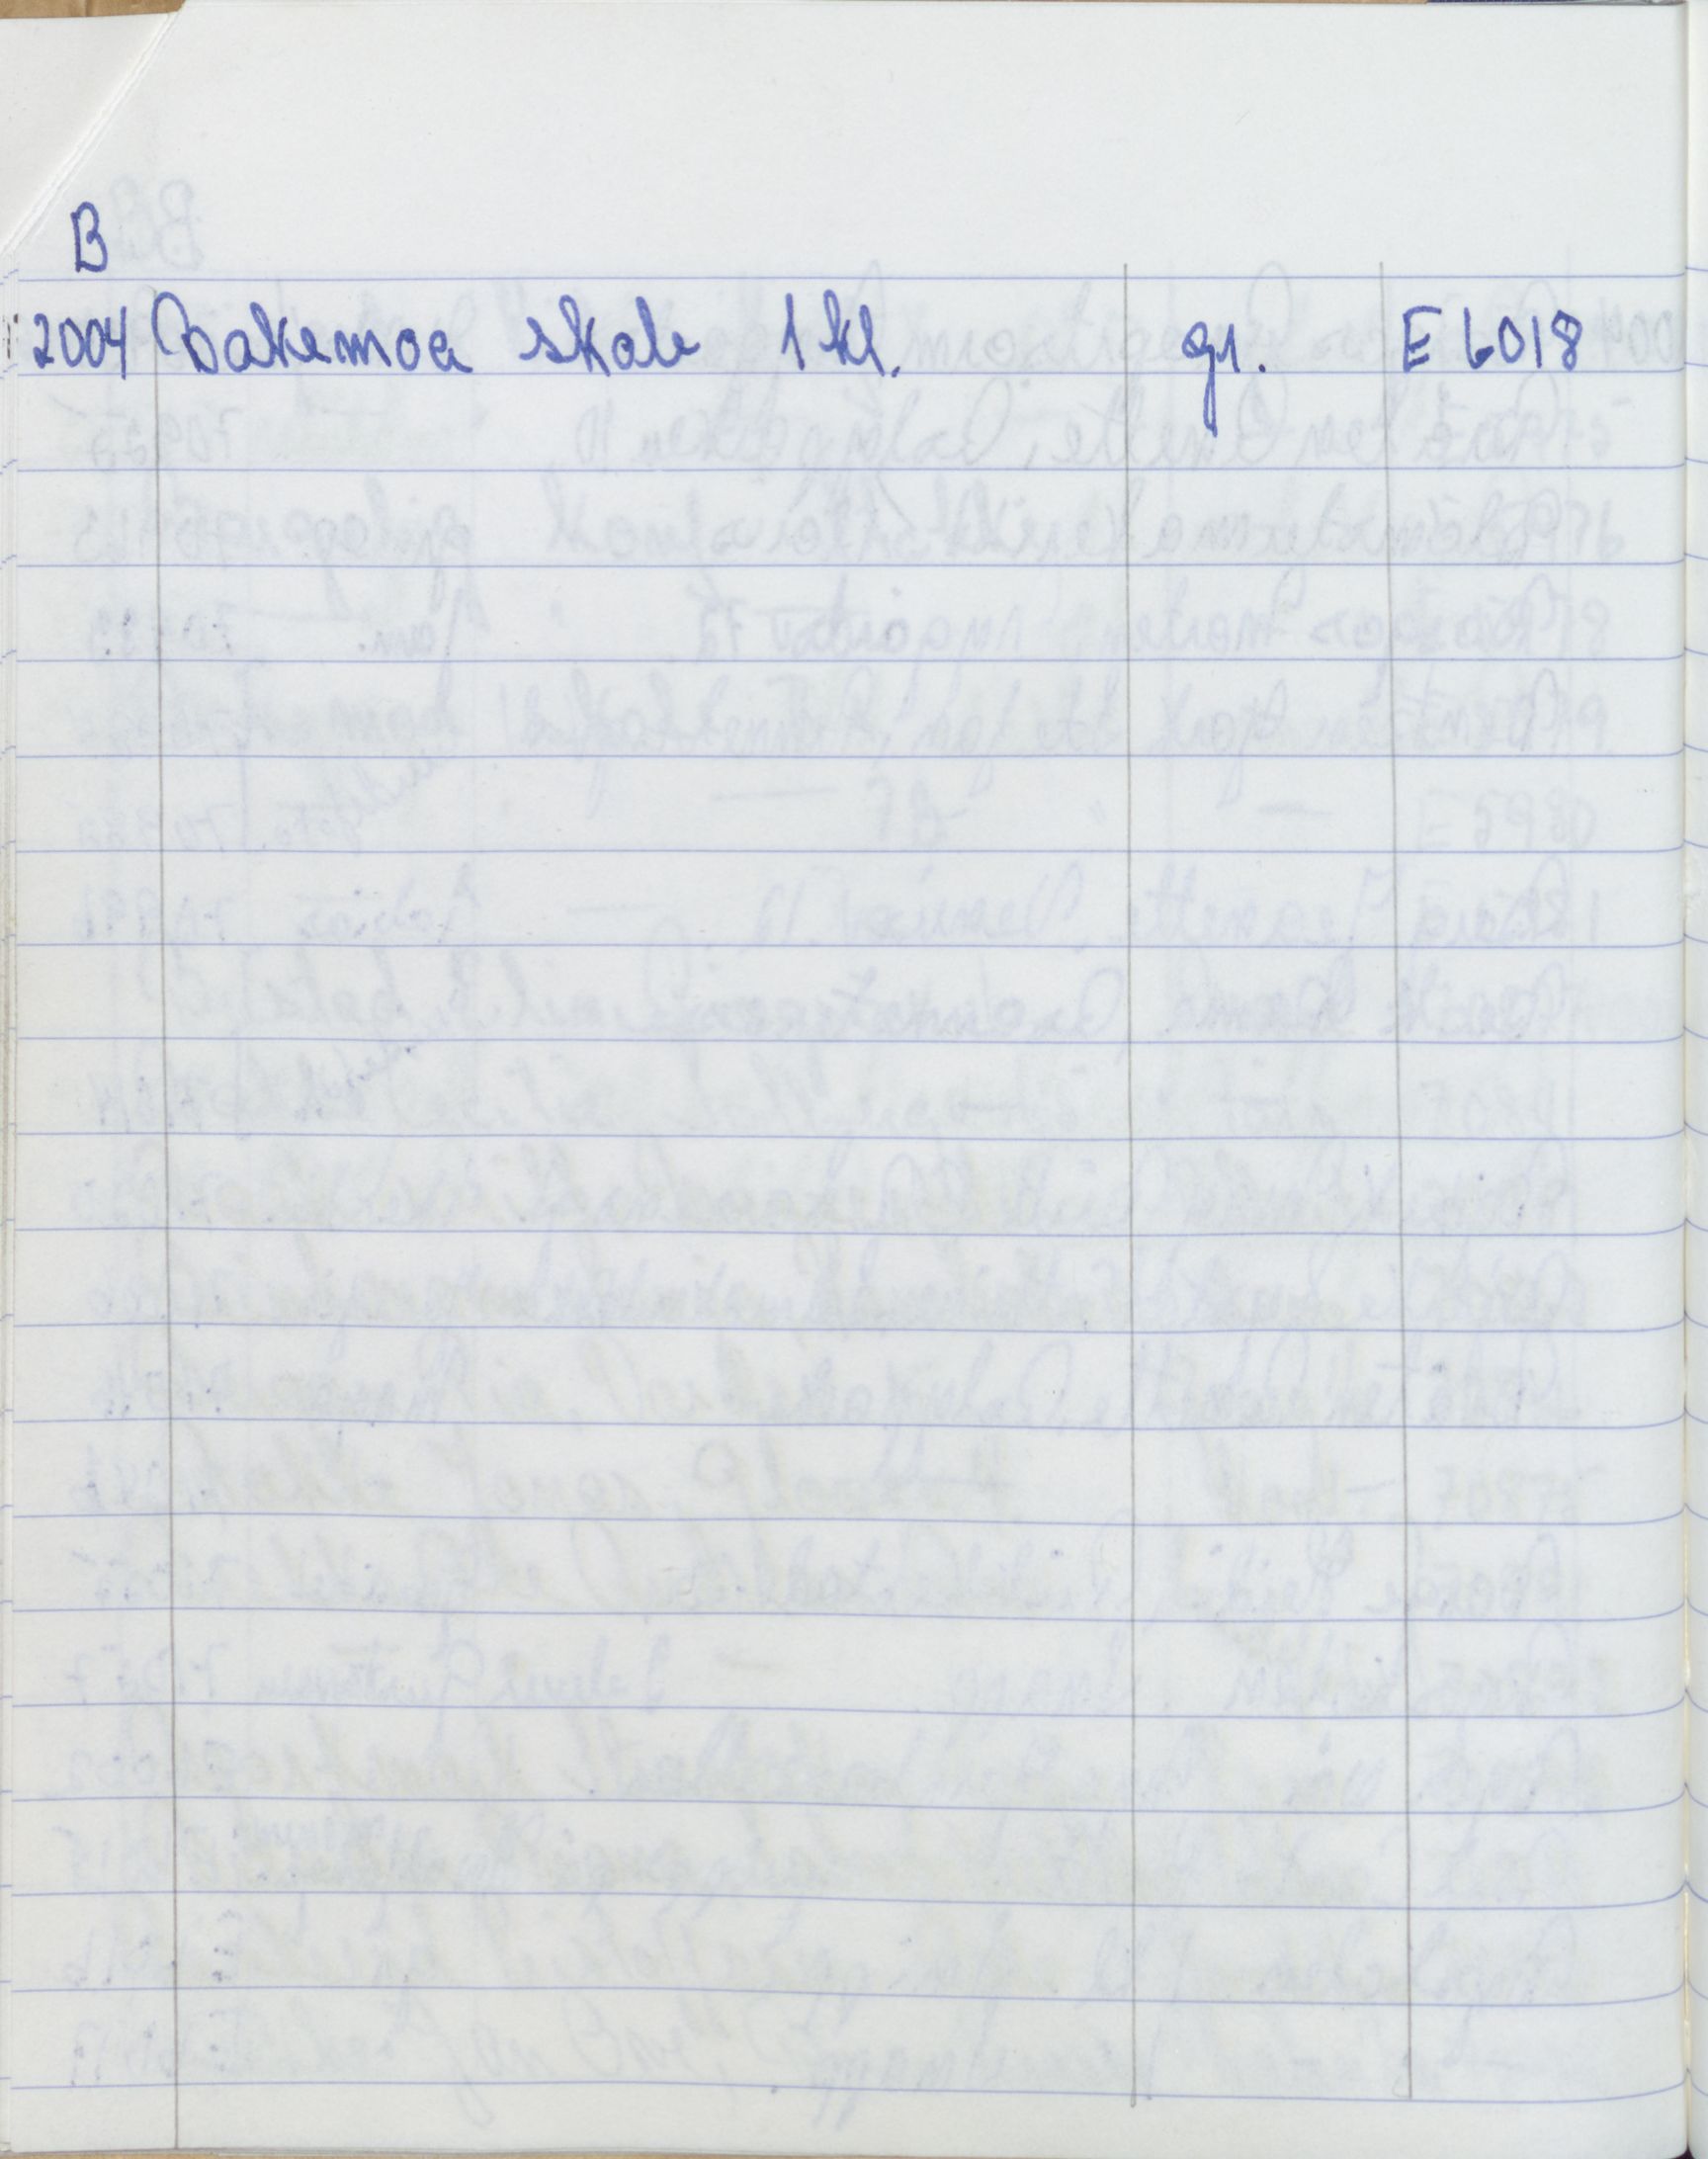 B
2004 Bakemoa skole 1 kl. gr. E 6018